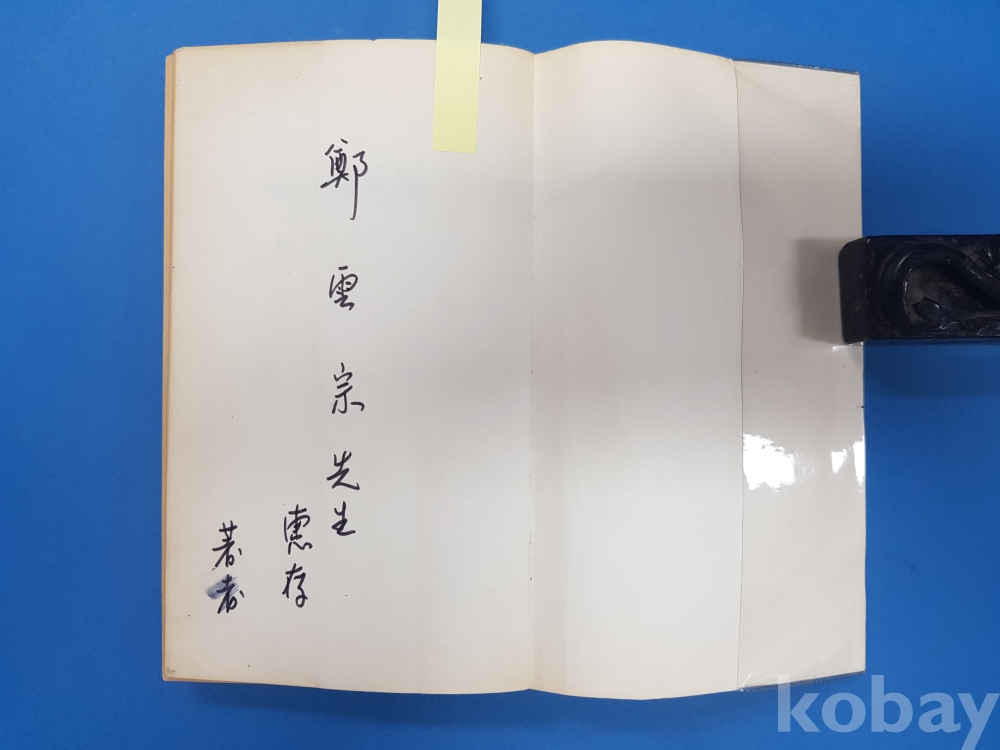 鄭雲宗先生
惠存
著者
kobay